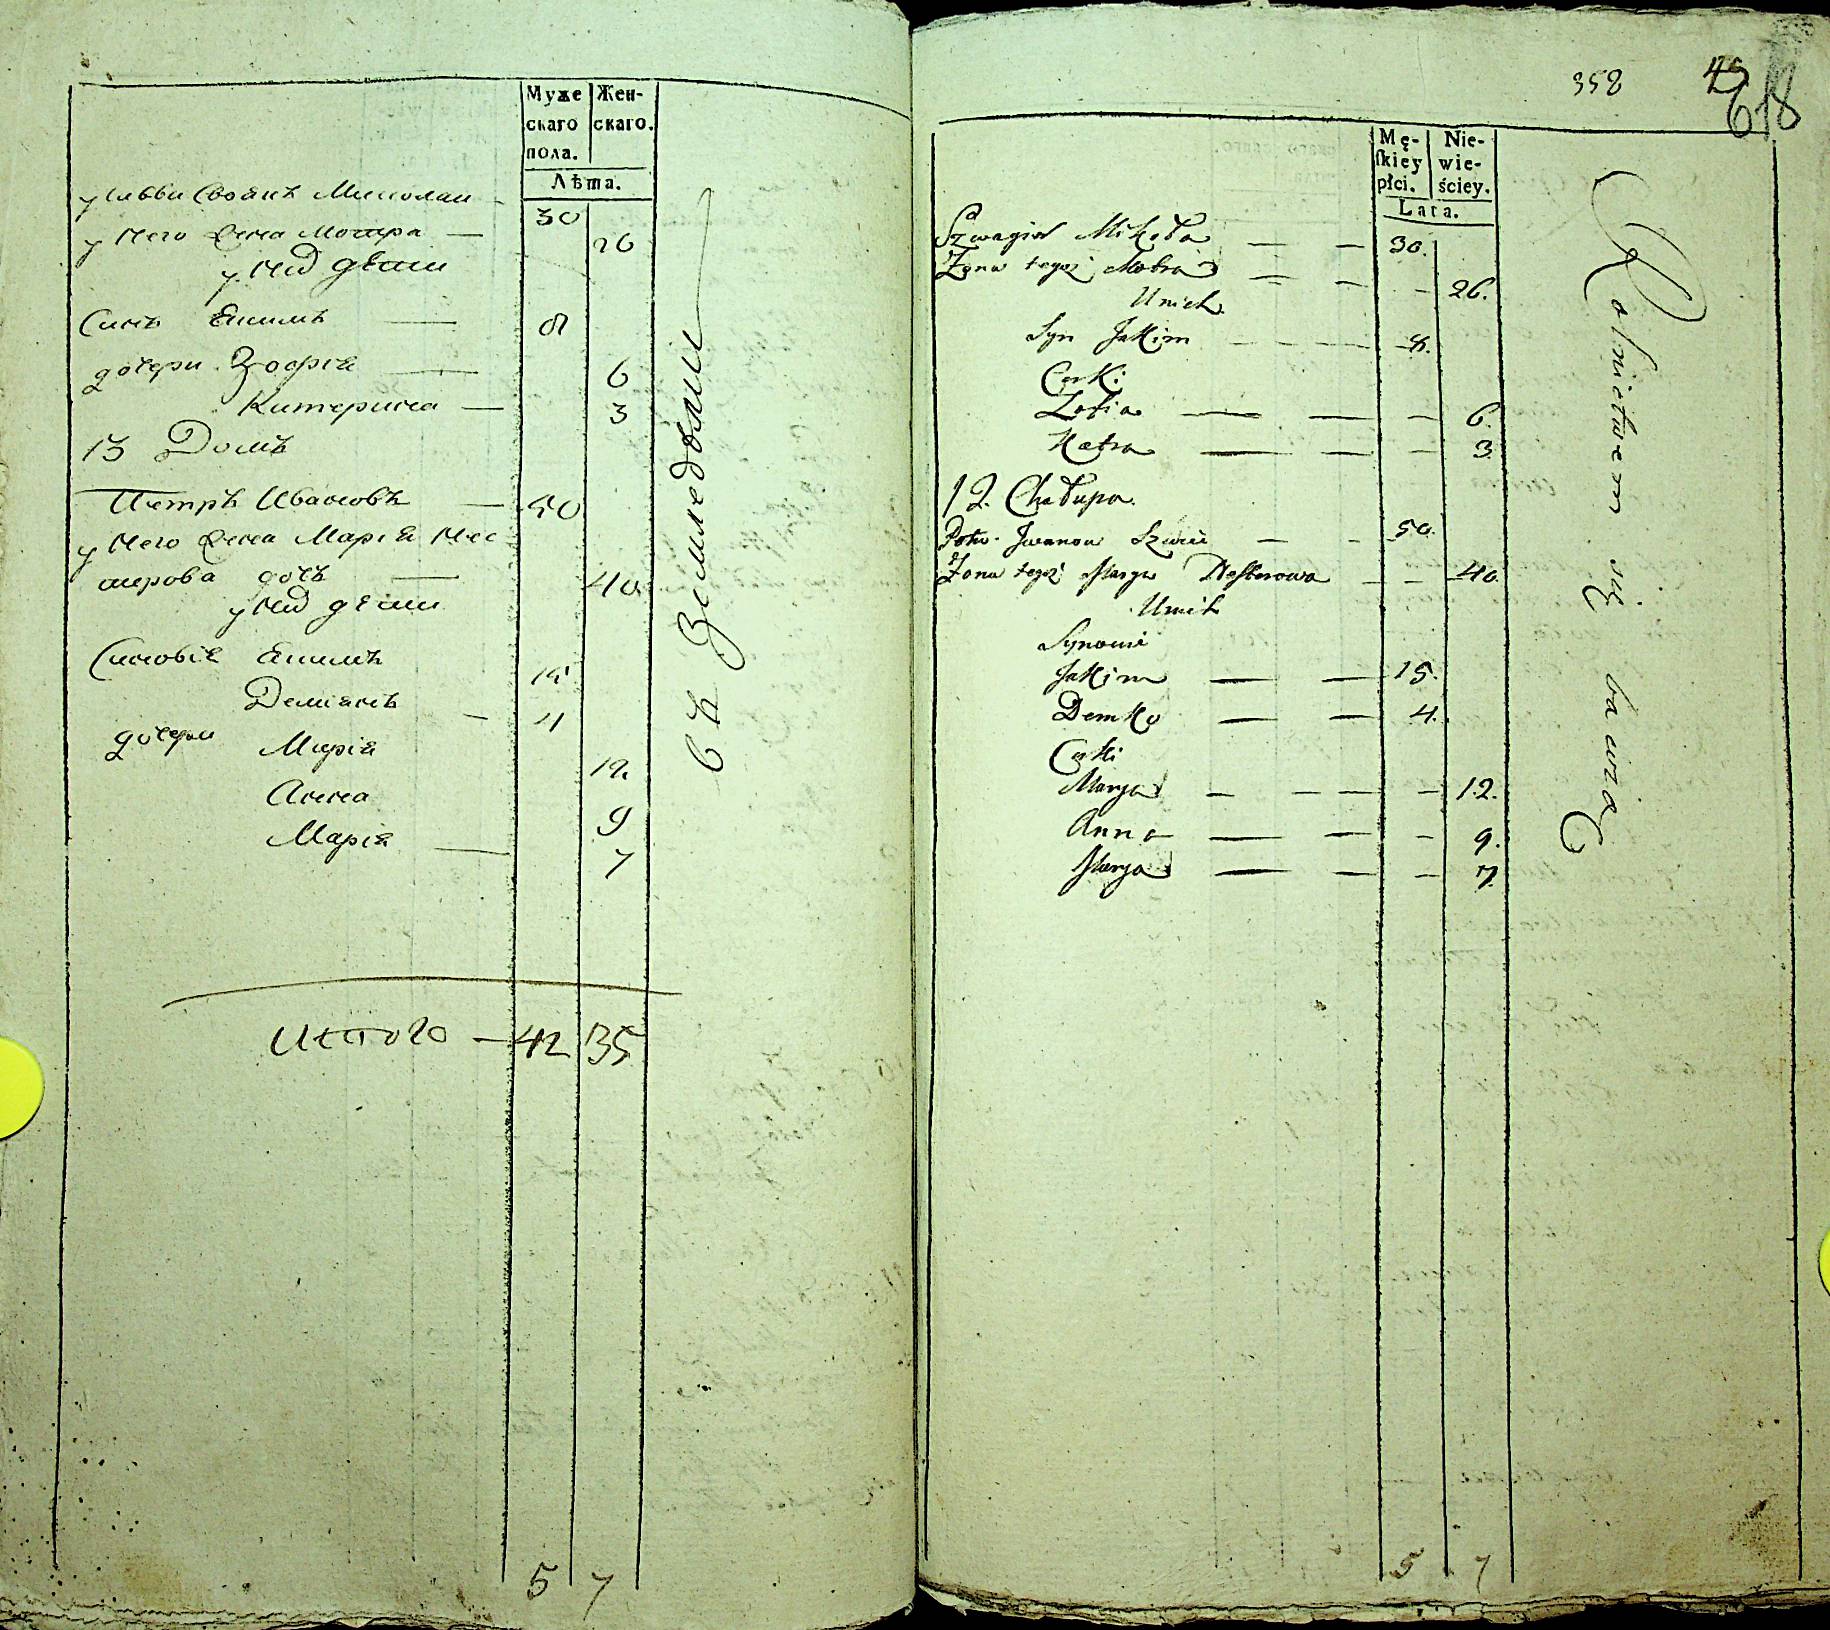 Муже
скаго
пола.
Жен-
скаго.
Лѣта.
у Своякъ Миколаи — 30
у него жена Мотра — 26
у нид дѣти
Синъ Екимъ — 8
дочери Зофія — 6
Катерина — 3
13 Домъ
Петръ Ивановъ — 50
у него жена Марія Нес
терова дочъ — 40
у нид дѣти
Синовіе Екимъ 15
Деміанъ — 4
дочери Марія 12
Анна 9
Марія — 7
Итого — 42 35
5 7
358
618
Mę-
skiey
płci.
Nie-
wie-
ściey.
Lata.
Szwagier Mikoła — — 30.
Żona tegoż Motra — — — 26.
U nich
Syn Jakim — — — 8.
Corki
Zofia — — — 6.
Katra — — — 3
12. Chałupa.
Piotr Iwanow — — 50.
Żona tegoż Marya Nesterowa — — 40.
U nich
Synowie
Jakim — — 15.
Demko — — 4.
Corki
Marya — — — — 12.
Anna — — — 9.
Marya — — — 7.
Rolnictwem się bawią
5 7